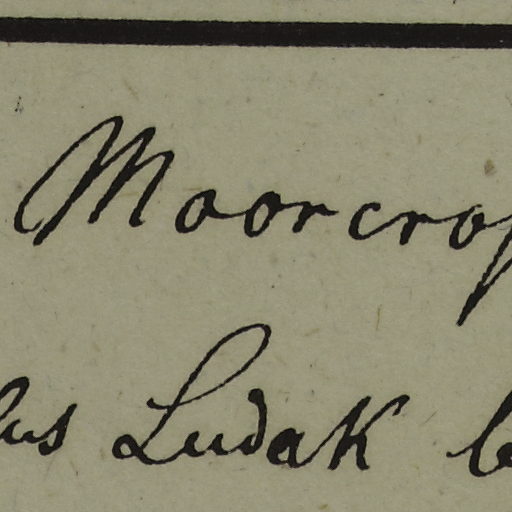 Moorcrof
lus Ludak le